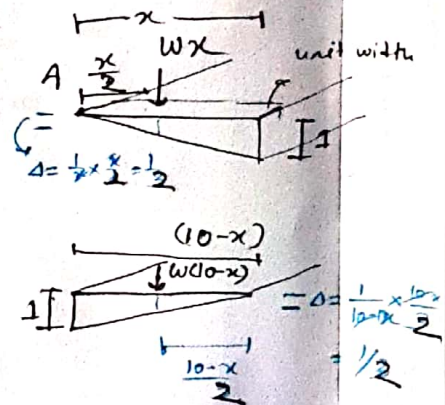 x
Wx
unit width
x/2
A
1
Δ = 1/x × x/2 = 1/2
(10-x)
W(10-x)
1
= Δ = 1/10-x × 10-x/2
= 1/2
10-x/2